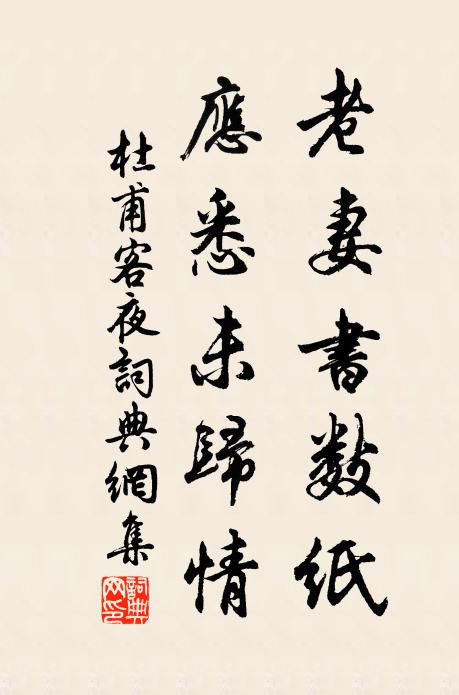 老妻書數紙
應悉未歸情
杜甫客夜詞典網集
詞典网印